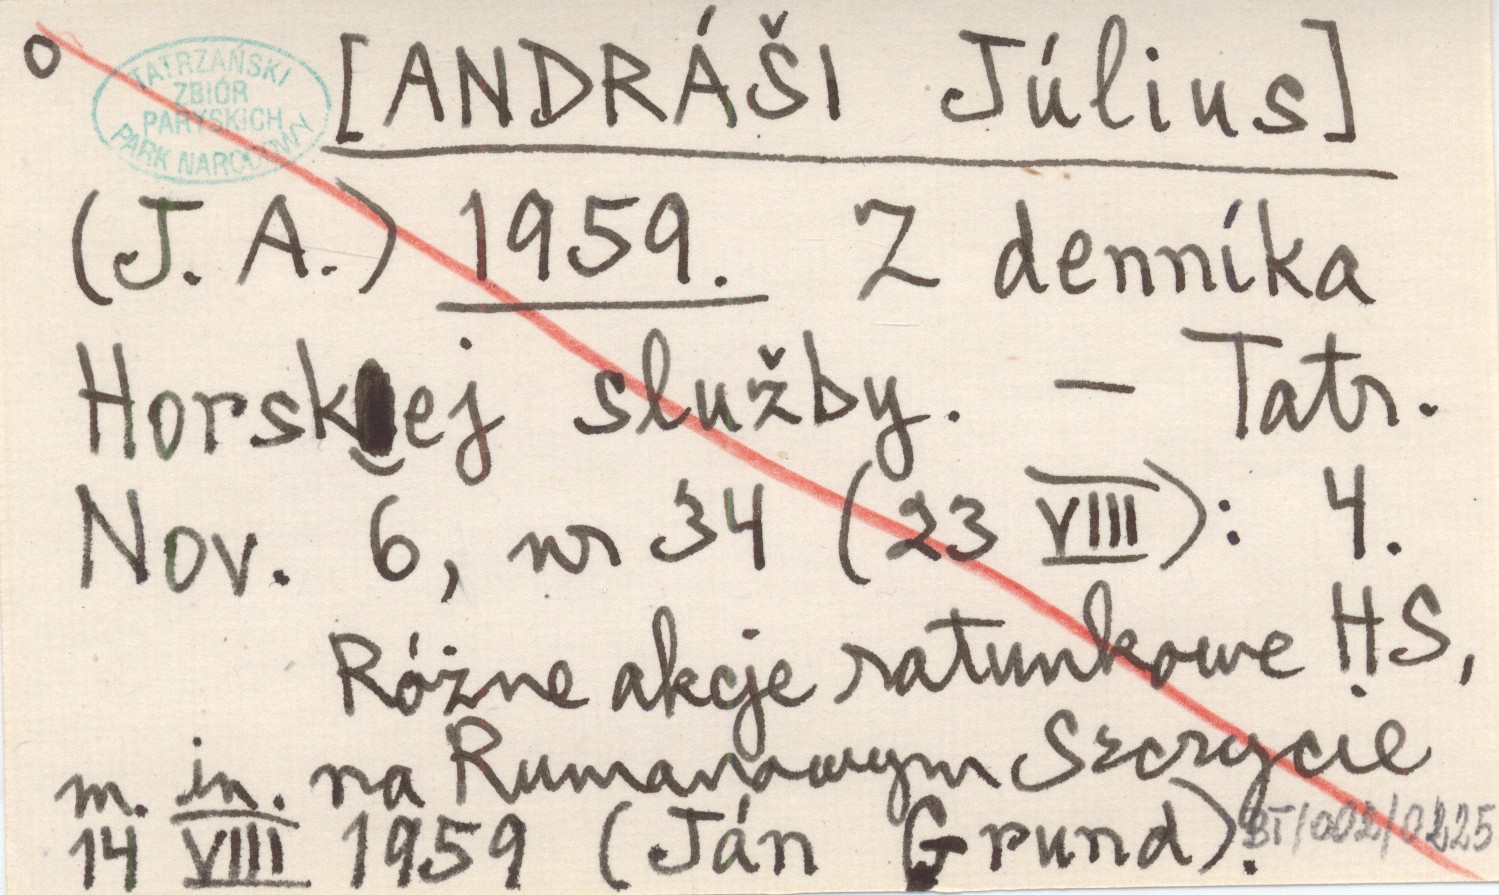 o
TATRZAŃSKI
ZBIÓR
PARYSKICH
PARK NARODOWY
[ANDRÁŠI Július]
(J. A.) 1959. Z denníka
Horskej služby. — Tatr.
Nov. 6, nr 34 (23 VIII): 4.
Różne akcje ratunkowe H.S,
m. in. na Rumanowym Szczycie
14 VIII 1959 (Ján Grund).
BT/002/0225